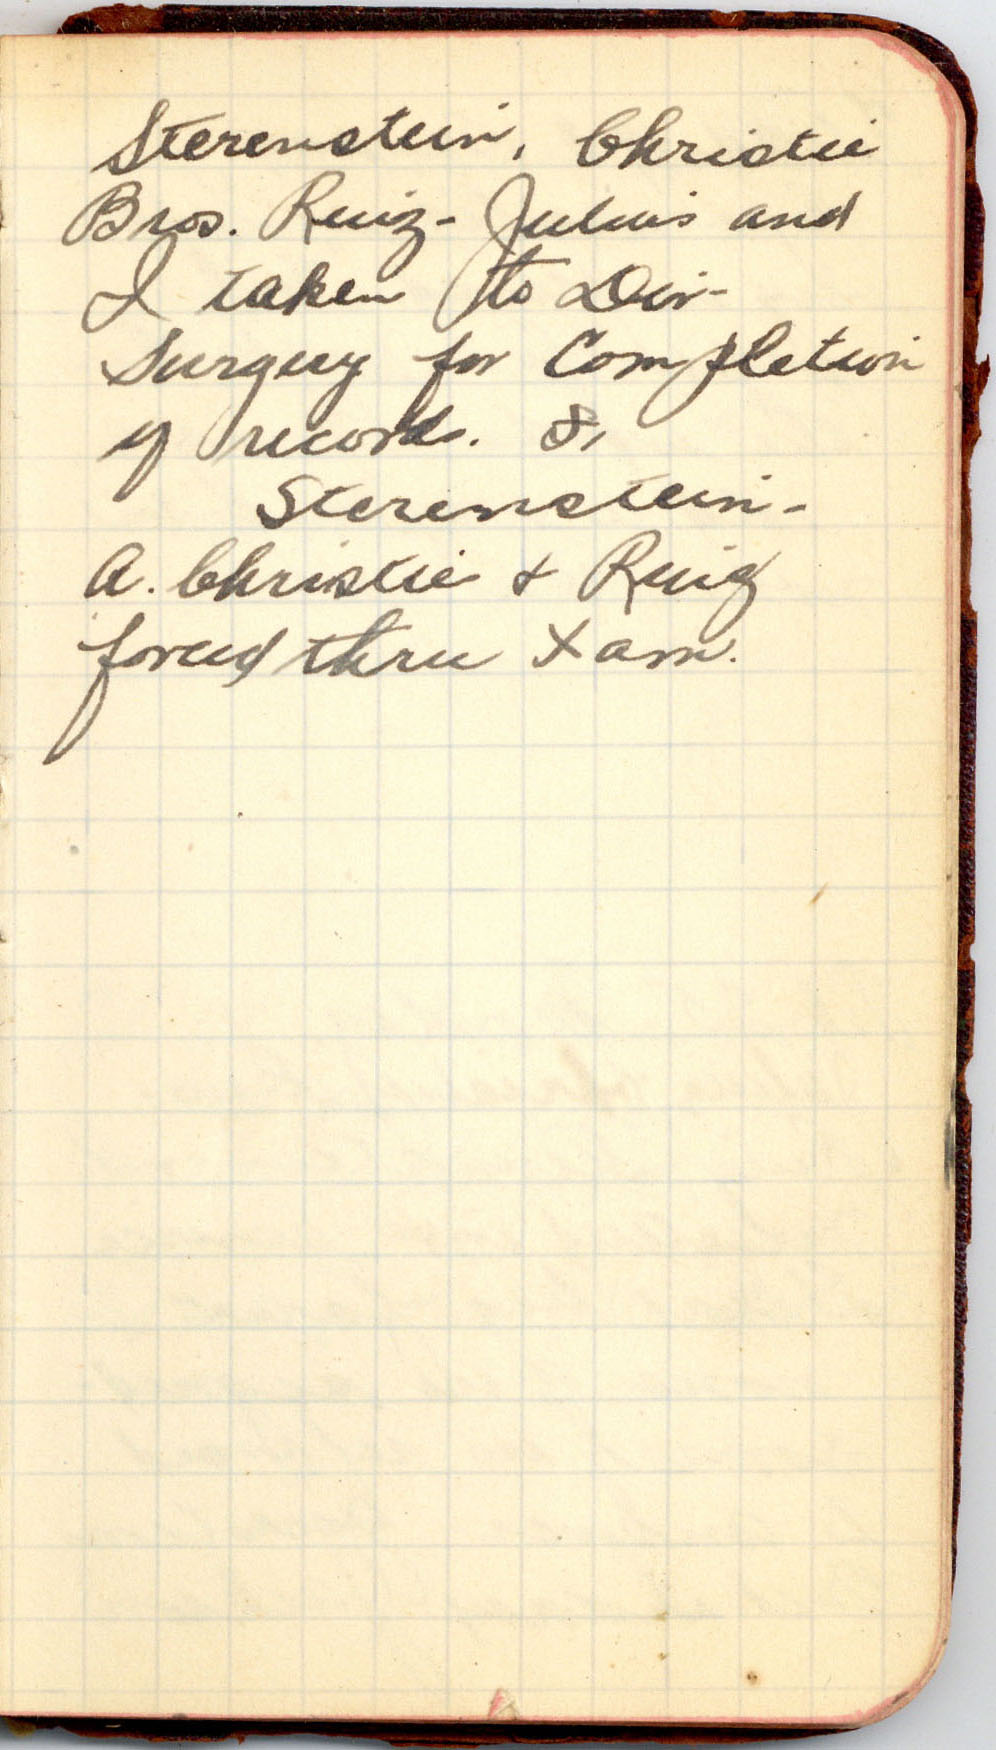 Sterenstein, Christie
Bros. Ruiz - Julius and
I taken to Div-
Surgery for Completion
of records. &,
Sterenstein -
A. Christie & Ruiz
forced thru Xam.